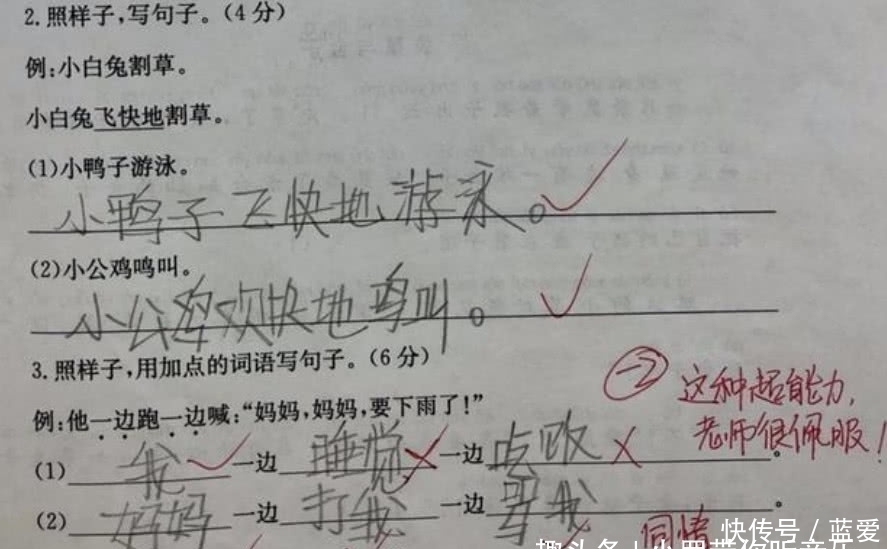 2.照样子,写句子。(4分)
例:小白兔割草。
小白兔飞快地割草。
(1)小鸭子游泳。
小鸭子飞快地游泳。
(2)小公鸡鸣叫。
小公鸡欢快地鸣叫。
3.照样子,用加点的词语写句子。(6分)
-2 这种超能力,
老师很佩服!
例:他一边跑一边喊:“妈妈,妈妈,要下雨了!”
(1) 我 一边 睡觉 一边 吃饭 。
(2) 妈妈 打我 一边 骂我 。
同情
快传号 / 蓝爱